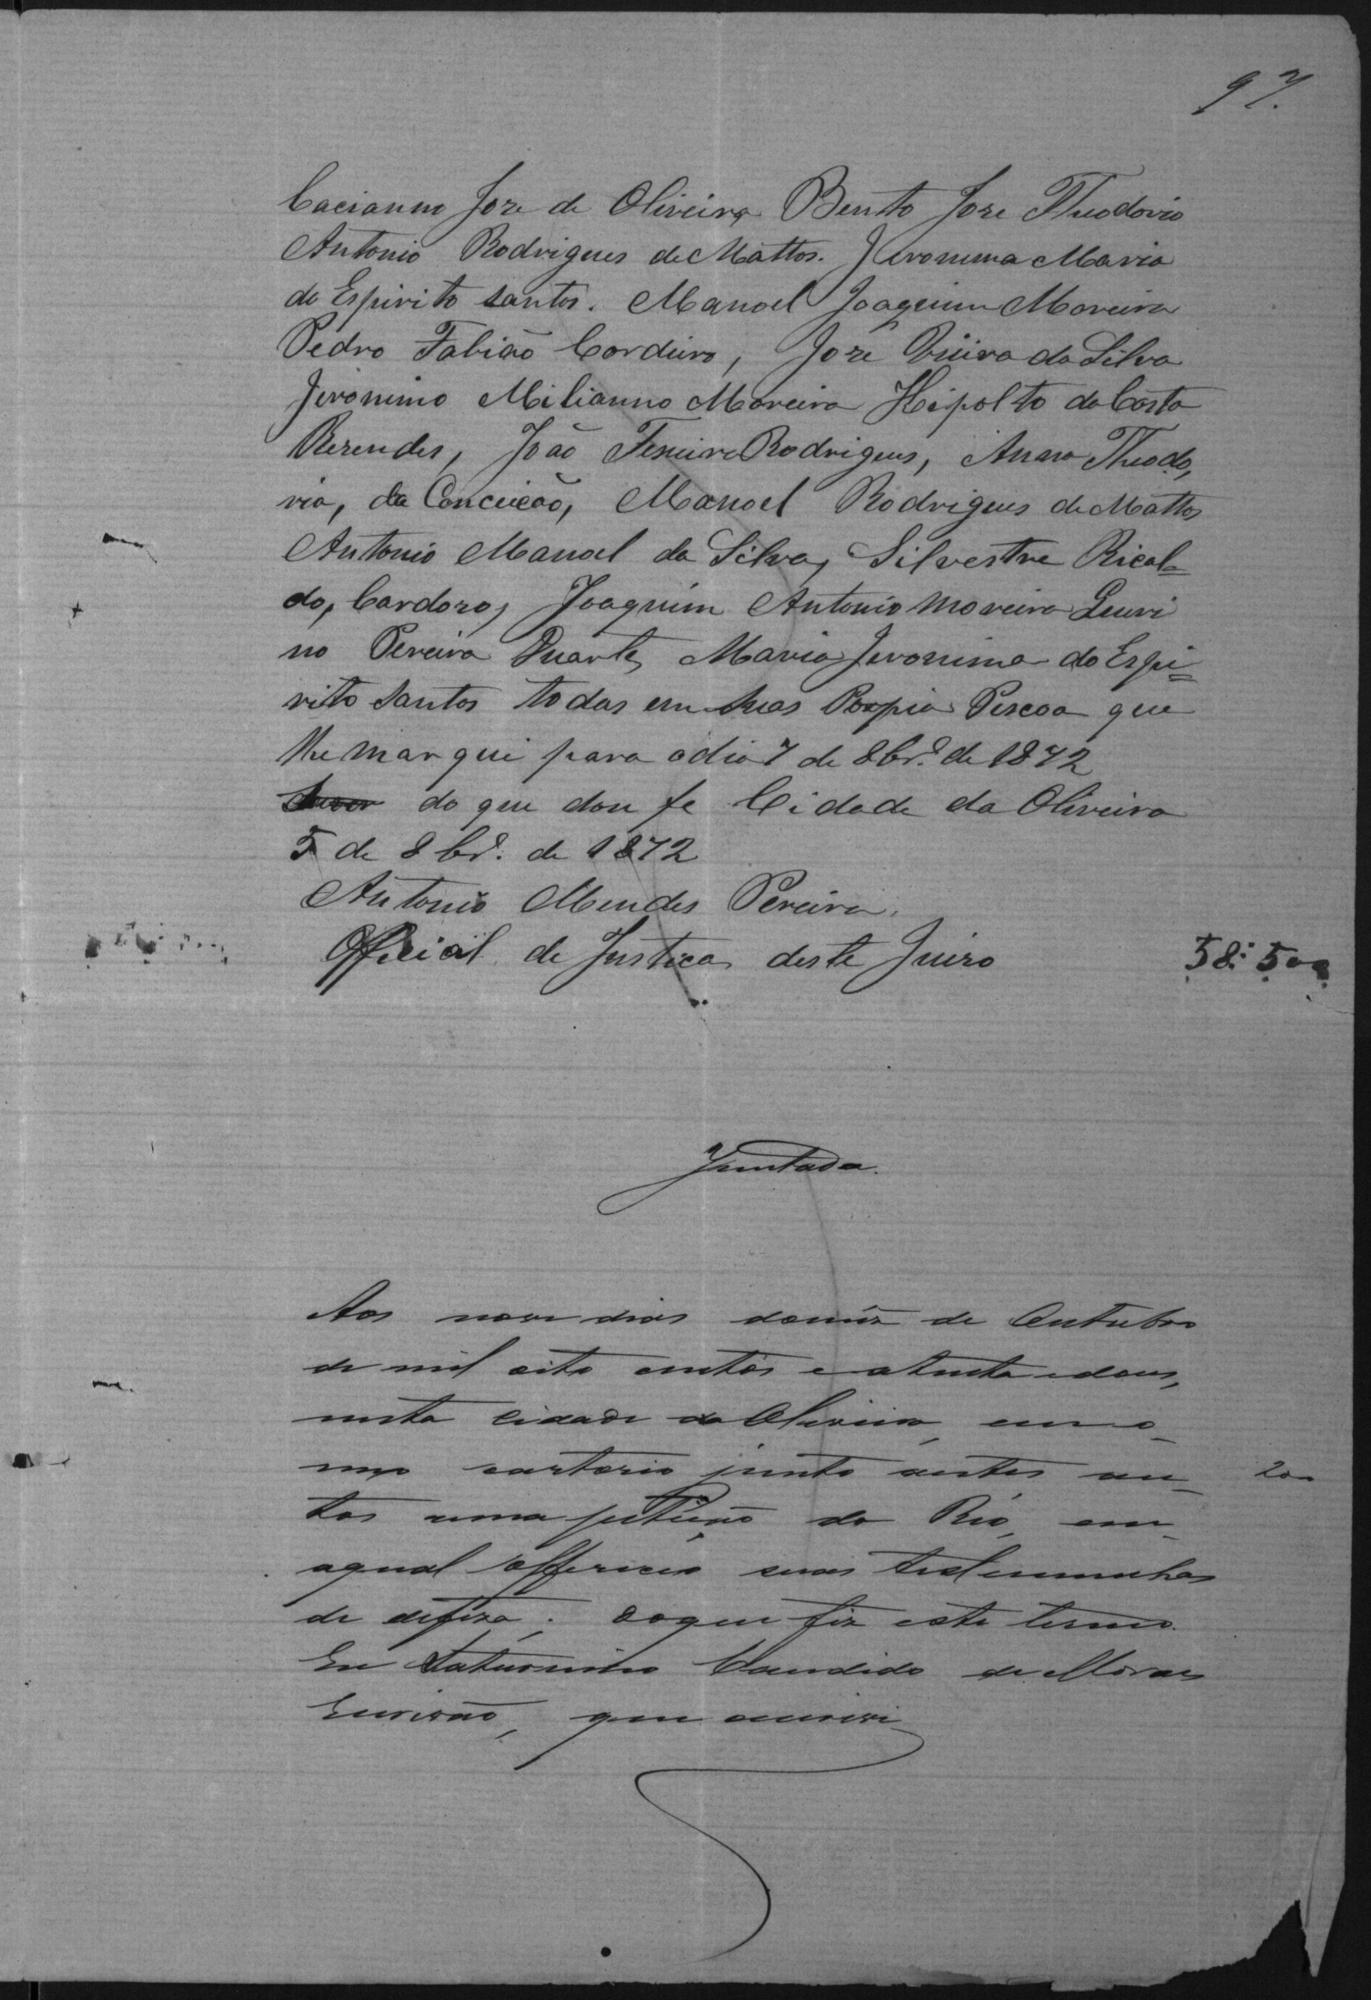 97.
Cacianno Joze de Oliveira, Bento Joze Theodorio
Antonio Rodrigues de Mattos. Jeronima Maria
do Espirito santos. Manoel Joaquim Moreira
Pedro Fabião Cordeiro, Joze Vieira da Silva
Jeronimo Milianno Moreira Hipolto da Costa
Rezendes, João Rodrigues, Anna Theodo,
ria, da Conceicão, Manoel Rodrigues de Mattos
Antonio Manoel da Silva, Silvestre Rical=
do, Cardozo, Joaquim Antonio Moreira
no Pereira Duarte, Maria Jeronima do Espi=
rito Santos todas em suas Propia Pescoa que
lhe marqui para o dia 7 de 8br.º de 1872
do que dou fe Cidade da Oliveira
5 de 8br.º de 1872
Antonio Mendes Pereira.
Official de Justica deste Juizo 58:500
Juntada.
Aos nove dias do mez de Outubro
de mil oito centos e setenta e dous,
nesta Cidade da Oliveira, em o
meo cartorio junto a estes au-
tos uma petição do Réo, em
a qual offerece suas testemunhas
de defeza; do que fiz este termo.
Eu Saturnino Candido de Moraes
Escrivão, que escrevi
200